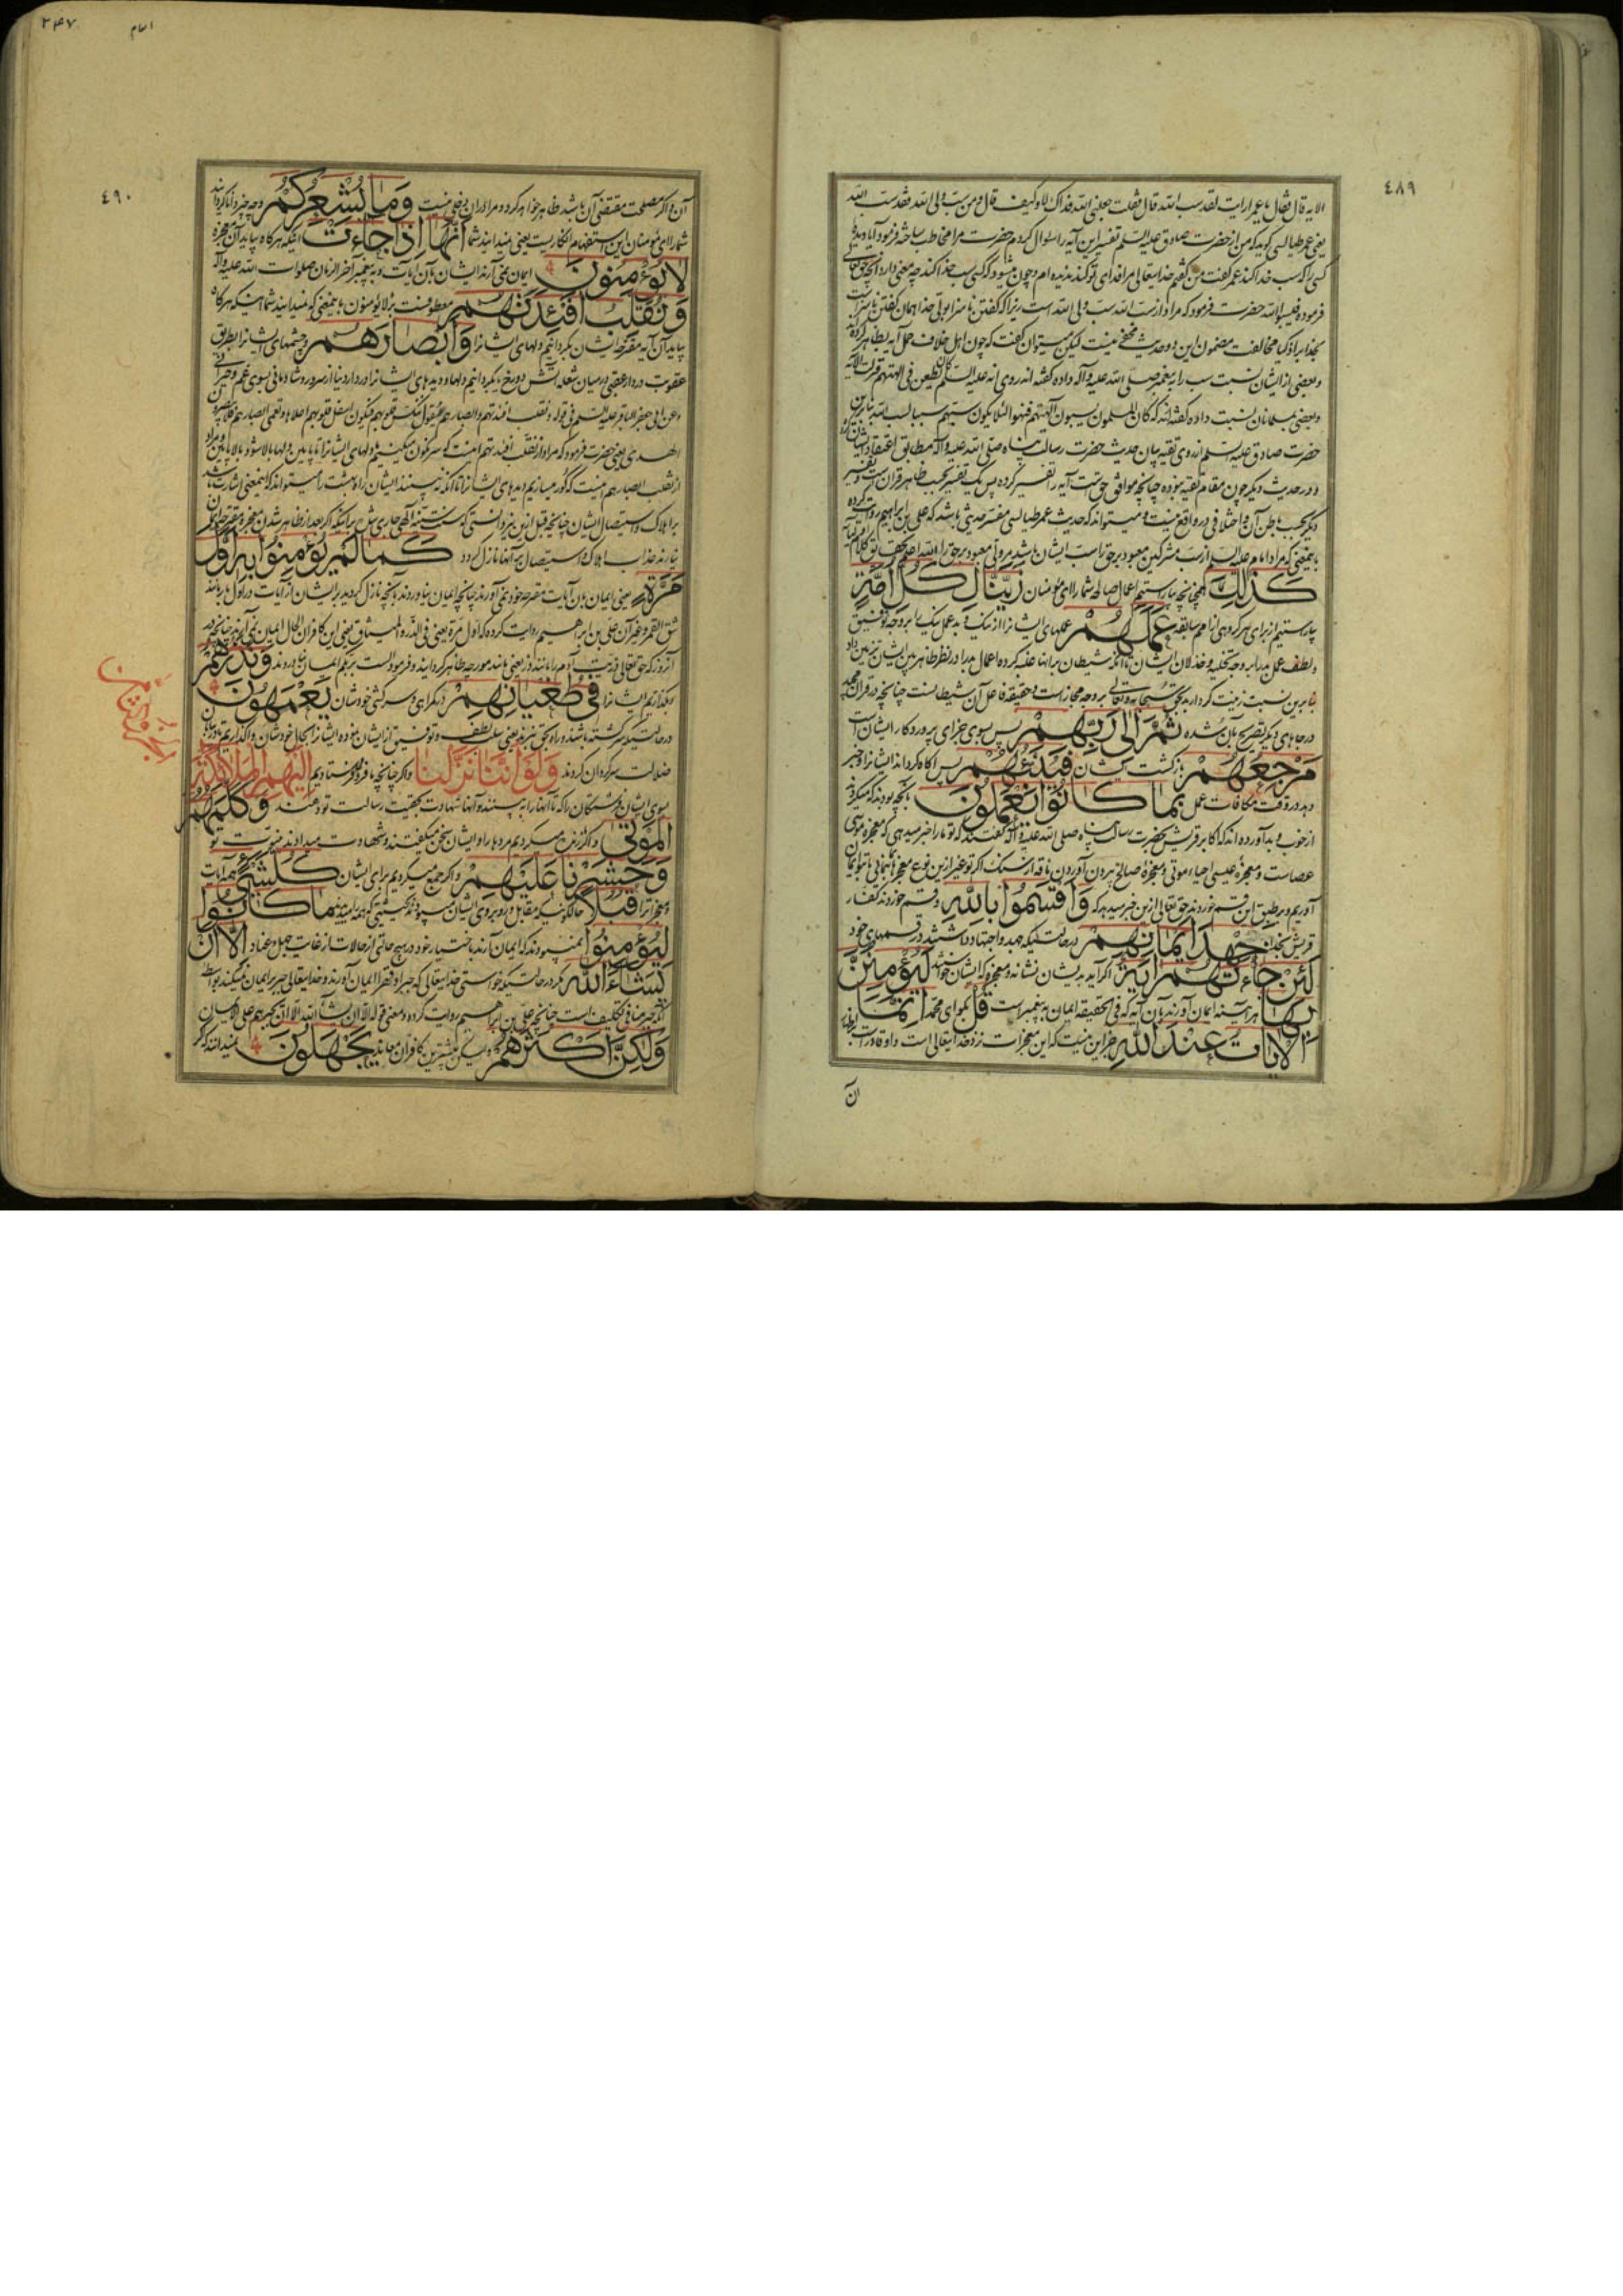 ٤٨٩
الایه قال فقال یا عمر ارایت لقد سب الله قال فقلت جعلنی الله فداک لا و کیف قال و من سب ولی الله فقد سب الله
یعنی عمر طیالسی گوید که من از حضرت صادق علیه السلم تفسیر این آیه را سئوال کردم حضرت مرا مخاطب ساخته فرمود آیا دیدهٔ
کسی را که سب خدا کند عمر گفت من گفتم خدایتعالی مرا فدای تو کند ندیده ام و چون میشود که کسی سب خدا کند چه معنی دارد آنچه حق تعالی
فرموده فیسبوا الله حضرت فرمود که مراد از سب الله سب ولی الله است زیرا که گفتن ناسزا بولی خدا همان گفتن ناسزاست
بخدا برادر کیا مخالفت مضمون این دو حدیث مخفی نیست لیکن میتوان گفت که چون اهل خلاف حمل آیه بظاهر کرده
و بعضی از ایشان نسبت سب را به پیغمبر صلی الله علیه و آله داده گفته اند روی انه علیه السلم کان یطعن فی الهتهم فنزلت الایة
و بعضی بمسلمانان نسبت داده گفته اند که کان المسلمون یسبون آلهتهم فنهوا لئلا یکون سبهم سببا لسب الله بنابرین
حضرت صادق علیه السلم از روی تقیه بیان حدیث حضرت رسالت پناه صلی الله علیه و آله مطابق اعتقاد ایشان کرده
و در حدیث دیگر چون مقام تقیه نبوده چنانچه موافق حق است آیه را تفسیر کرده پس یک تفسیر بحسب ظاهر قرآن است و تفسیر
دیگر بحسب باطن آن و اختلافی در واقع نیست و میتواند که حدیث عمر طیالسی مفسر حدیثی باشد که علی بن ابراهیم روایت کرده
بایمعنی که مراد امام علیه السلم از سب مشرکین معبود برحق را سب ایشان باشد مر ولی معبود برحق را الله اعلم بحقایق کلامه
كَذٰلِكَ همچنانچه بیاراستیم اعمال صالحه شما را ای مؤمنان زَيَّنَّا لِكُلِّ اُمَّةٍ
بیاراستیم از برای هر گروهی از امم سابقه عَمَلَهُمْ عملهای ایشانرا از نیک و بد عمل نیک را بر وجه توفیق
و لطف و عمل بد را بر وجه تخلیه و خذلان ایشان تا آنکه شیطان بر آنها غلبه کرده اعمال بد را در نظر ظاهر بین ایشان تزیین داد
بنابرین نسبت زینت کردار بد بحق سبحانه و تعالی بر وجه مجاز است و حقیقة فاعل آن شیطانست چنانچه در قرآن مجید
در جاهای دیگر تصریح بآن شده ثُمَّ اِلٰى رَبِّهِمْ پس بسوی جزای پروردگار ایشان است
مَرْجِعُهُمْ بازگشت ایشان فَيُنَبِّئُهُمْ پس آگاه گرداند ایشانرا و خبر
دهد در وقت مکافات عمل بِمَا كَانُوا يَعْمَلُونَ بآنچه بودند که میکردند
از خوب و بد آورده اند که اکابر قریش بحضرت رسالت پناه صلی الله علیه و آله گفتند که تو ما را خبر میدهی که معجزه موسی
عصا است و معجزهٔ عیسی احیاء موتی و معجزهٔ صالح بیرون آوردن ناقه از سنگ اگر تو غیر ازین نوع معجزها بنمائی ما بتو ایمان
آوریم و بر طبق این قسم خوردند حق تعالی ازین خبر میدهد که وَاَقْسَمُوا بِاللّٰهِ و قسم خوردند کفار
قریش بخدا جَهْدَ اَيْمَانِهِمْ در حالتیکه جهد و اجتهاد داشتند در قسمهای خود
لَئِنْ جَاءَتْهُمْ اٰيَةٌ اگر آید بدیشان نشانه و معجزه که ایشان خواستند لَيُؤْمِنُنَّ
بِهَا هر آینه ایمان آورند بآن آیه که فی الحقیقه ایمان به پیغمبر است قُلْ بگو ای محمد اِنَّمَا
الْاٰيَاتُ عِنْدَ اللّٰهِ جز این نیست که این معجزات نزد خدایتعالی است و او قادر است بر اظهار
آن
٢٤٧
انعام
٤٩٠
آن و اگر مصلحت مقتضی آن باشد ظاهر خواهد کرد و مرا در آن دخلی نیست وَمَا يُشْعِرُكُمْ و چه چیز دانا گرداند
شما را ای مؤمنان این استفهام انکاریست یعنی نمیدانید شما اَنَّهَا اِذَا جَاءَتْ اینکه هر گاه بیاید آن معجزه
لَا يُؤْمِنُونَ ایمان نمی آرند ایشان بآن آیات و به پیغمبر آخر الزمان صلوات الله علیه و آله
وَنُقَلِّبُ اَفْئِدَتَهُمْ معطوفست بر لا یؤمنون بایمعنی که نمیدانید شما اینکه هر گاه
بیاید آن آیه مقترحه ایشان بگردانیم دلهای ایشانرا وَاَبْصَارَهُمْ و چشمهای ایشانرا بطریق
عقوبت در دار عقبی در میان شعله آتش دوزخ یا بگردانیم دلها و دیدهای ایشانرا در دار دنیا از سرور و شادمانی بسوی غم و حیرانی
و عن ابی جعفر الباقر علیه السلم فی قوله و نقلب افئدتهم و ابصارهم یقول ننکس قلوبهم فیکون اسفل قلوبهم اعلاها و نعمی ابصارهم فلا یبصرون
الهدی یعنی حضرت فرمود که مراد از نقلب افئدتهم اینست که سرنگون میکنیم دلهای ایشانرا تا پایین دلها بالا شود و بالا پایین و مراد
از نقلب ابصارهم اینست که کور میسازیم دیدهای ایشانرا تا آنکه نبینند ایشان راه هدایت را میتواند که اینمعنی اشارت باشد
بر اهلاک و استیصال ایشان چنانچه قبل ازین نیز دانستی که سنت سنیه الهی جاری شده بر اینکه اگر بعد از ظاهر شدن معجزه مقترحه ایمان
نیارند عذاب اهلاک و استیصال بر آنها نازل گردد كَمَا لَمْ يُؤْمِنُوا بِهِ اَوَّلَ
مَرَّةٍ یعنی ایمان بآن آیات مقترحه خود نمی آورند چنانچه ایمان نیاوردند بآنچه نازل گردید بر ایشان از آیات در اول بار مانند
شق القمر و غیر آن علی بن ابراهیم روایت کرده که اول مرة یعنی فی الذر و المیثاق یعنی این کافران الحال ایمان نمی آرند چنانچه در
آنروز که حق تعالی ذریت آدم را مانند ذر یعنی مانند مورچه ظاهر گردانید و فرمود الست بربکم ایمان نیاوردند وَنَذَرُهُمْ
و بگذاریم ایشانرا فِي طُغْيَانِهِمْ در گمراهی و سرکشی خودشان يَعْمَهُونَ
در حالتیکه سرگشته باشند و راه بحق نبرند یعنی سلب لطف و توفیق از ایشان نموده ایشانرا بحال خودشان واگذاریم تا در بیابان
ضلالت سرگردان گردند وَلَوْ اَنَّنَا نَزَّلْنَا و اگر چنانچه ما فرو فرستادیم اِلَيْهِمُ الْمَلٰائِكَةَ
بسوی ایشان فرشتگان را که تا آنها را به بینند و آنها شهادت بحقیت رسالت تو دهند وَكَلَّمَهُمُ
الْمَوْتٰى و اگر زنده میکردیم مردها را و ایشان سخن میگفتند و شهادت میدادند بنبوت تو
وَحَشَرْنَا عَلَيْهِمْ و اگر جمع میکردیم برای ایشان كُلَّ شَيْءٍ همه آیات
و معجزاترا قُبُلًا حالکونیکه مقابل و روبروی ایشان میبودند بحیثیتی که همه را میدیدند مَا كَانُوا
لِيُؤْمِنُوا نمیبودند که ایمان آرند باختیار خود در هیچ حالتی از حالات از غایت جهل و عناد اِلَّا اَنْ
يَشَاءَ اللّٰهُ مگر در حالتیکه خواستی خدایتعالی که جبرا و قهرا ایمان آورند و خدایتعالی جبر بر ایمان نمیکند بواسطه
آنکه جبر منافی تکلیف است چنانچه علی بن ابراهیم روایت کرده و معنی قوله الا ان یشاء الله الا ان یجبرهم علی الایمان
وَلٰكِنَّ اَكْثَرَهُمْ و لیکن بیشترین کافران معاند يَجْهَلُونَ نمیدانند که اگر
الجزء الثامن